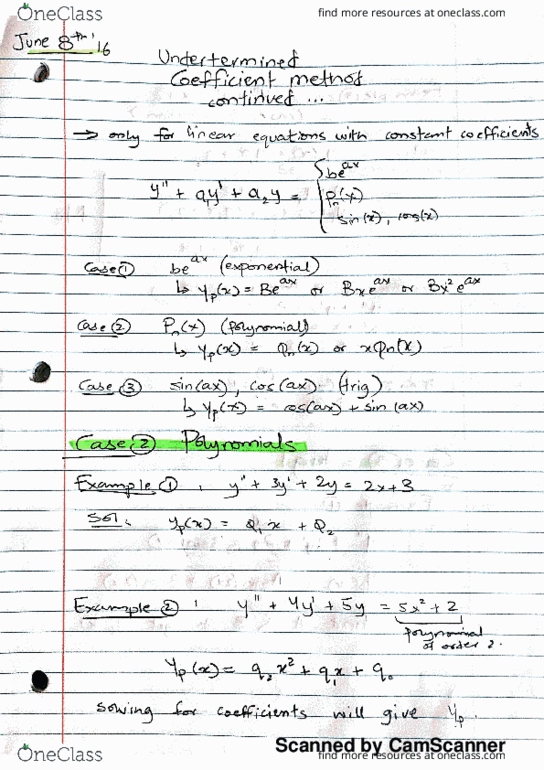 OneClass
find more resources at oneclass.com
June 8th '16
Undertermined
Coefficient method
continued ...
→ only for linear equations with constant coefficients
y" + a₁y' + a₂y = { be^ax
Pₙ(x)
sin(x), cos(x)
Case ① be^ax (exponential)
↳ yp(x) = Be^ax or Bxe^ax or Bx²e^ax
Case ② Pₙ(x) (polynomial)
↳ yp(x) = Qₙ(x) or xQₙ(x)
Case ③ sin(ax), cos(ax) (trig)
↳ yp(x) = cos(ax) + sin(ax)
Case ② Polynomials
Example ① : y" + 3y' + 2y = 2x+3
Sol : yp(x) = Q₁x + Q₂
Example ② : y" + 4y' + 5y = 5x² + 2
polynomial
of order 2.
yp(x) = q₂x² + q₁x + q₀
solving for coefficients will give yp.
Scanned by CamScanner
OneClass
find more resources at oneclass.com